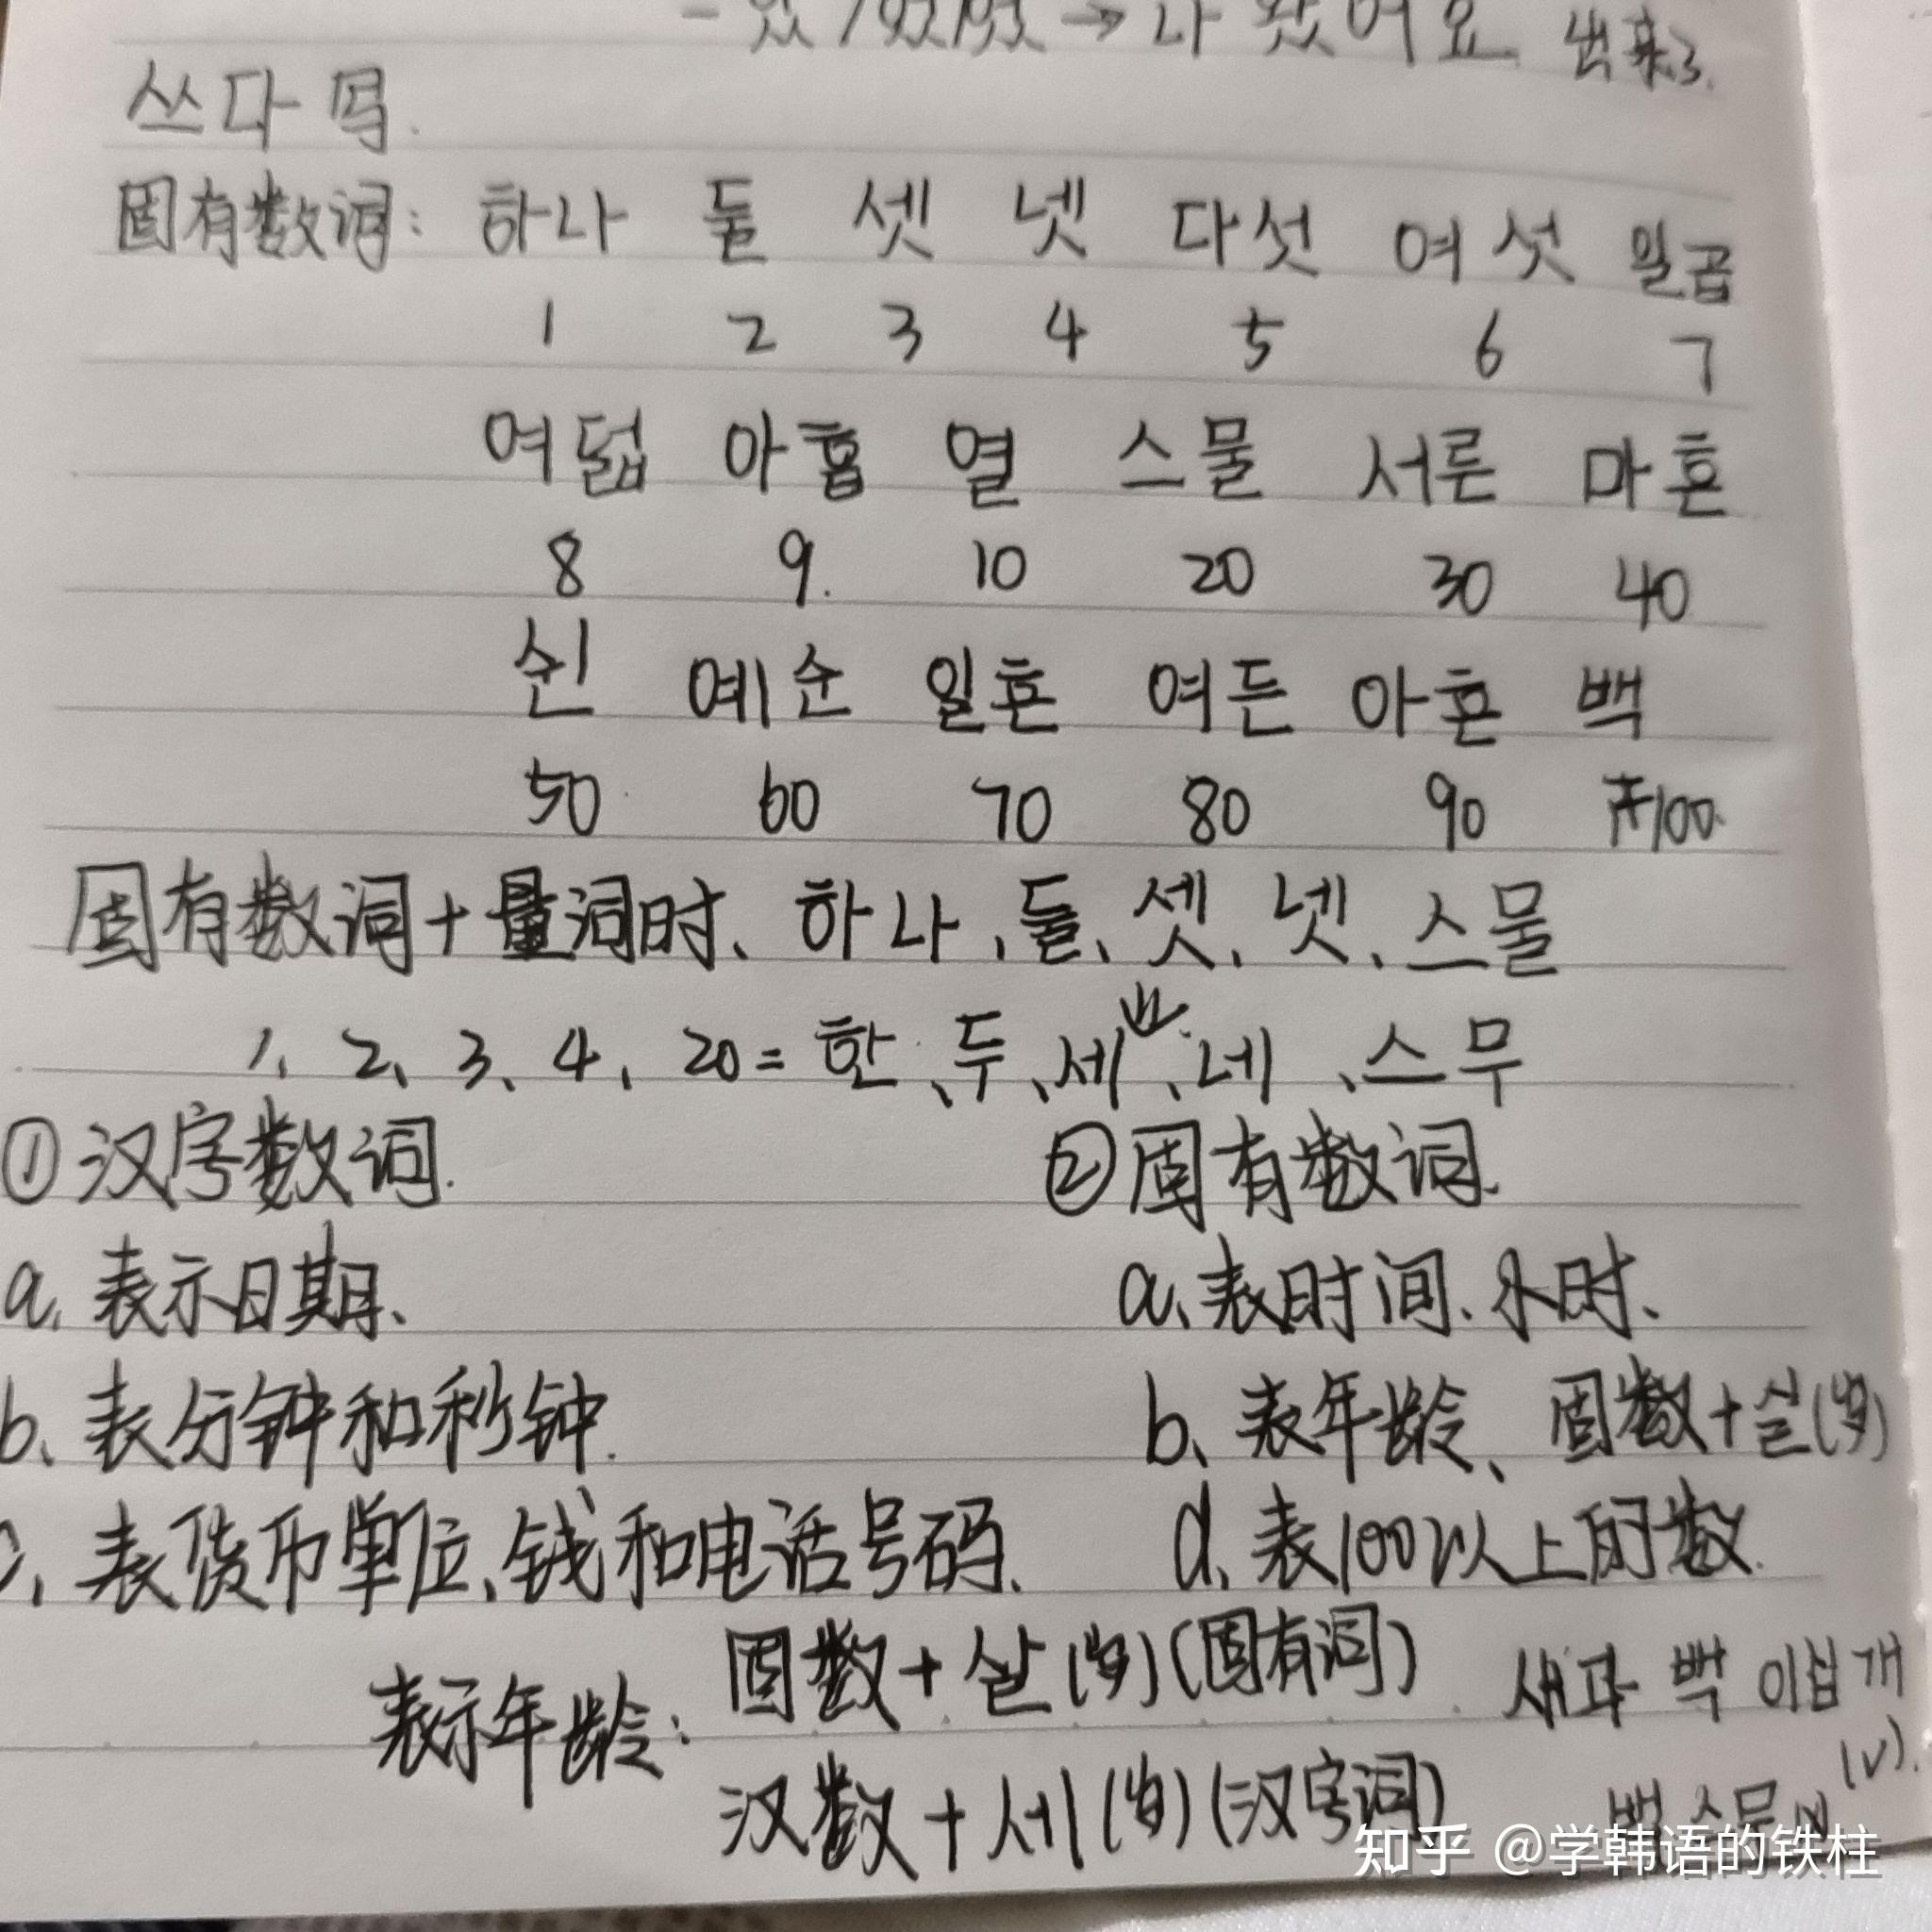 나왔어요 出来了.
쓰다 写.
固有数词: 하나 둘 셋 넷 다섯 여섯 일곱
1 2 3 4 5 6 7
여덟 아홉 열 스물 서른 마흔
8 9. 10 20 30 40
쉰 예순 일흔 여든 아흔 백
50 60 70 80 90 100.
固有数词+量词时、하나、둘、셋、넷、스물
1、2、3、4、20=한、두、세、네、스무
①汉字数词. ②固有数词.
a. 表示日期、 a、表时间、小时、
b、表分钟和秒钟. b、表年龄、固数+살(岁)
表货币单位、钱和电话号码. d、表100以上的数.
表示年龄: 固数+살(岁)(固有词) 사과 백 이십 개
(v).
汉数+세(岁)(汉字词)
知乎 @学韩语的铁柱